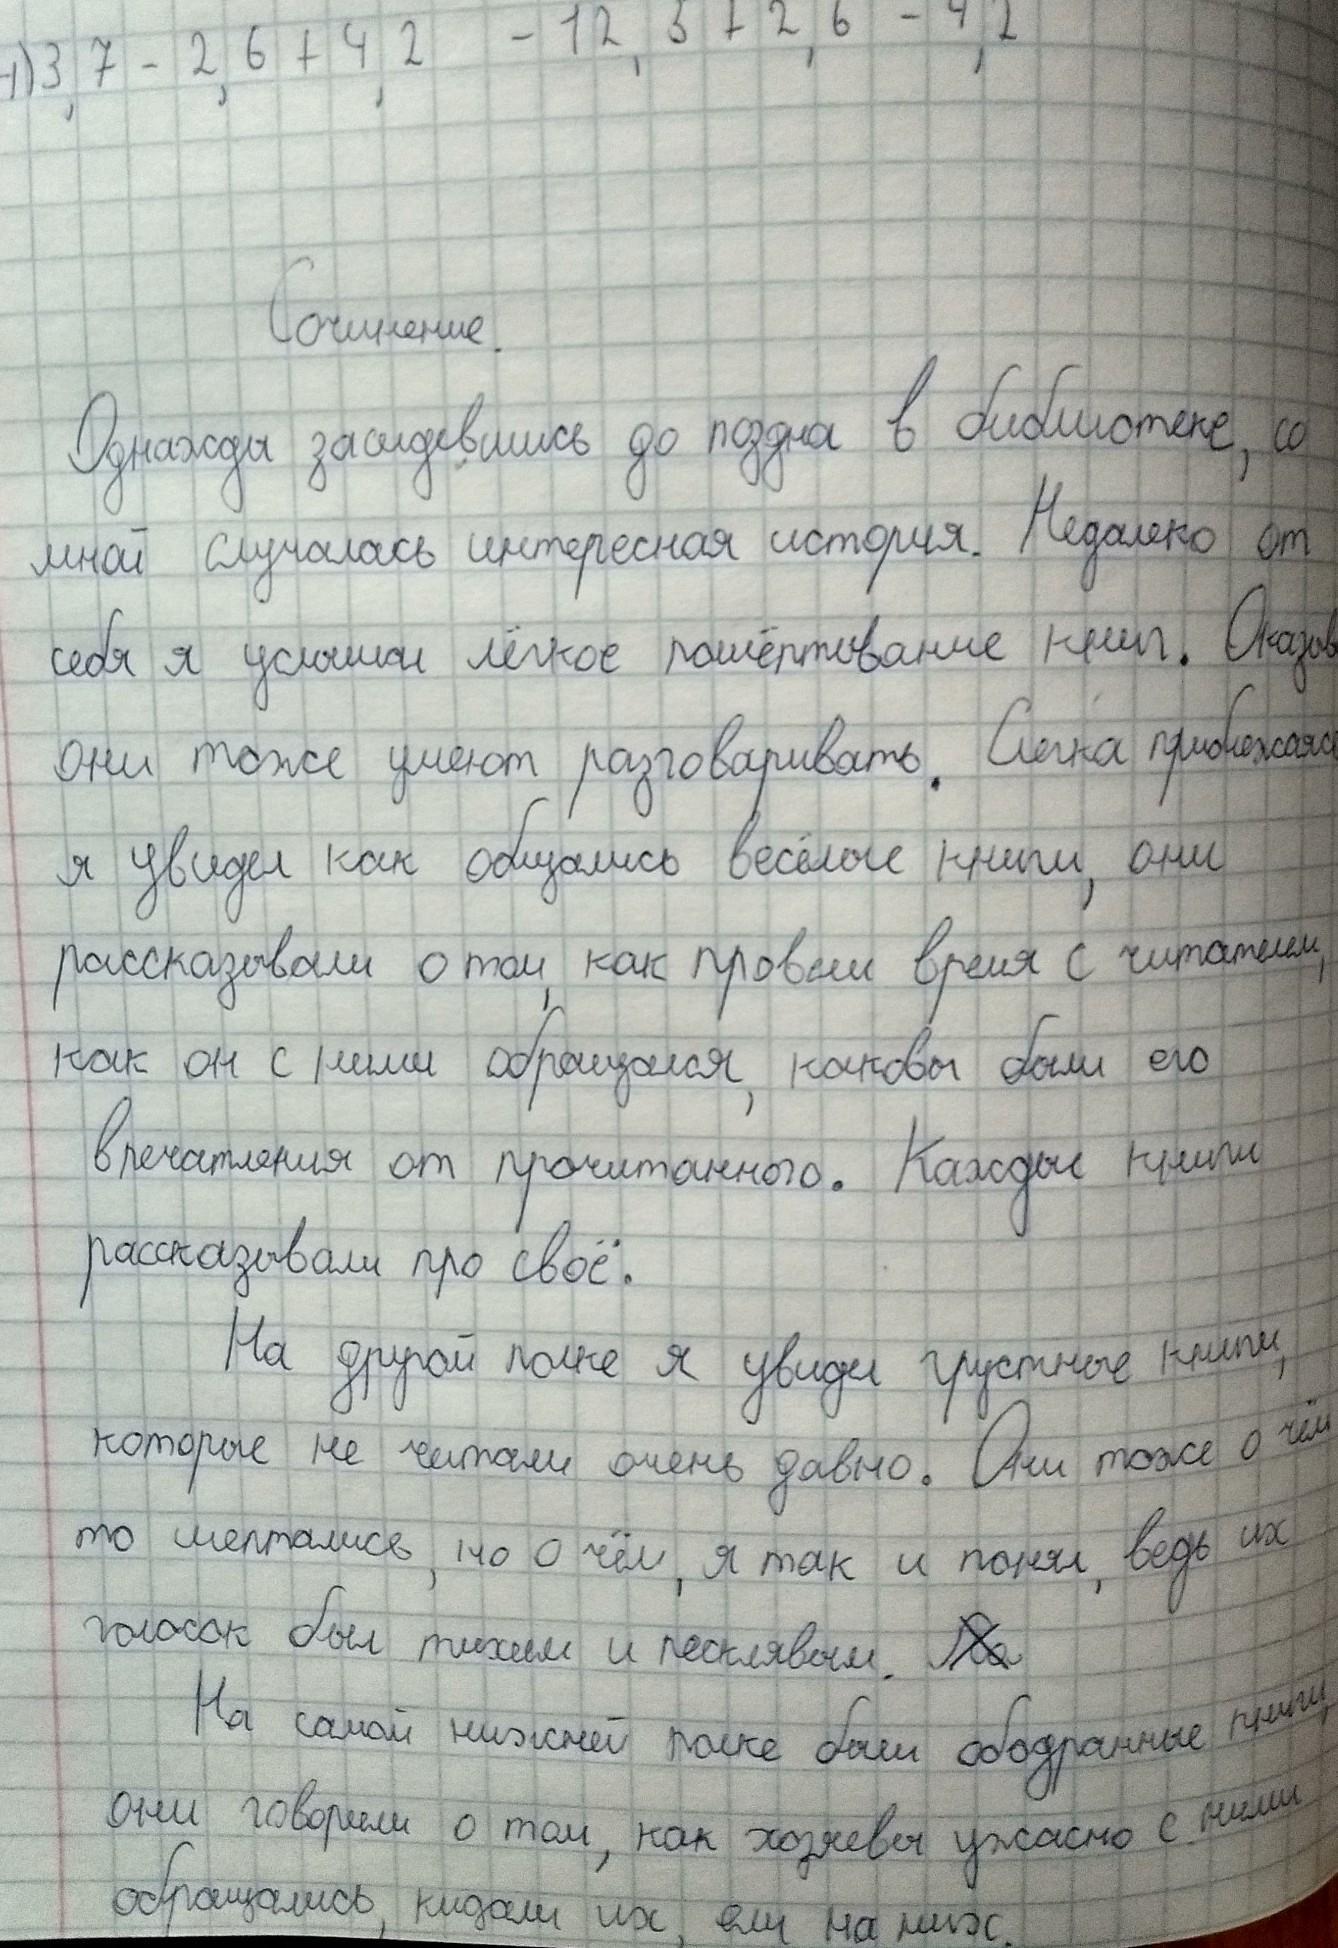 1) 3,7 - 2,6 + 4,2 - 12,5 + 2,6 - 4,2
Сочинение.
Однажды засидевшись до поздна в библиотеке, со
мной случалась интересная история. Недалеко от
себя я услышал лёгкое пошёптывание книг. Оказыв
они тоже умеют разговаривать. Слегка приближаясь
я увидел как общались весёлые книги, они
рассказывали о том, как провели время с читателем,
как он с ними обращался, каковы были его
впечатления от прочитанного. Каждые книги
рассказывали про своё.
На другой полке я увидел грустные книги,
которые не читали очень давно. Они тоже о чём
то шептались, но о чём, я так и понял, ведь их
голосок был тихим и песклявым.
На самой нижней полке были ободранные книги,
они говорили о том, как хозяевы ужасно с ними
обращались, кидали их, ели на них.